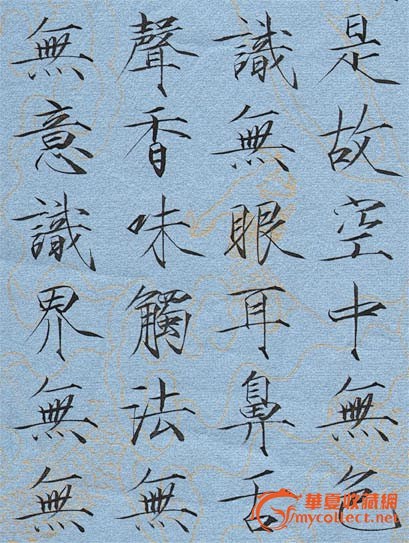 是故空中無色
識無眼耳鼻舌
聲香味觸法無
無意識界無無
華夏收藏網
mycollect.net